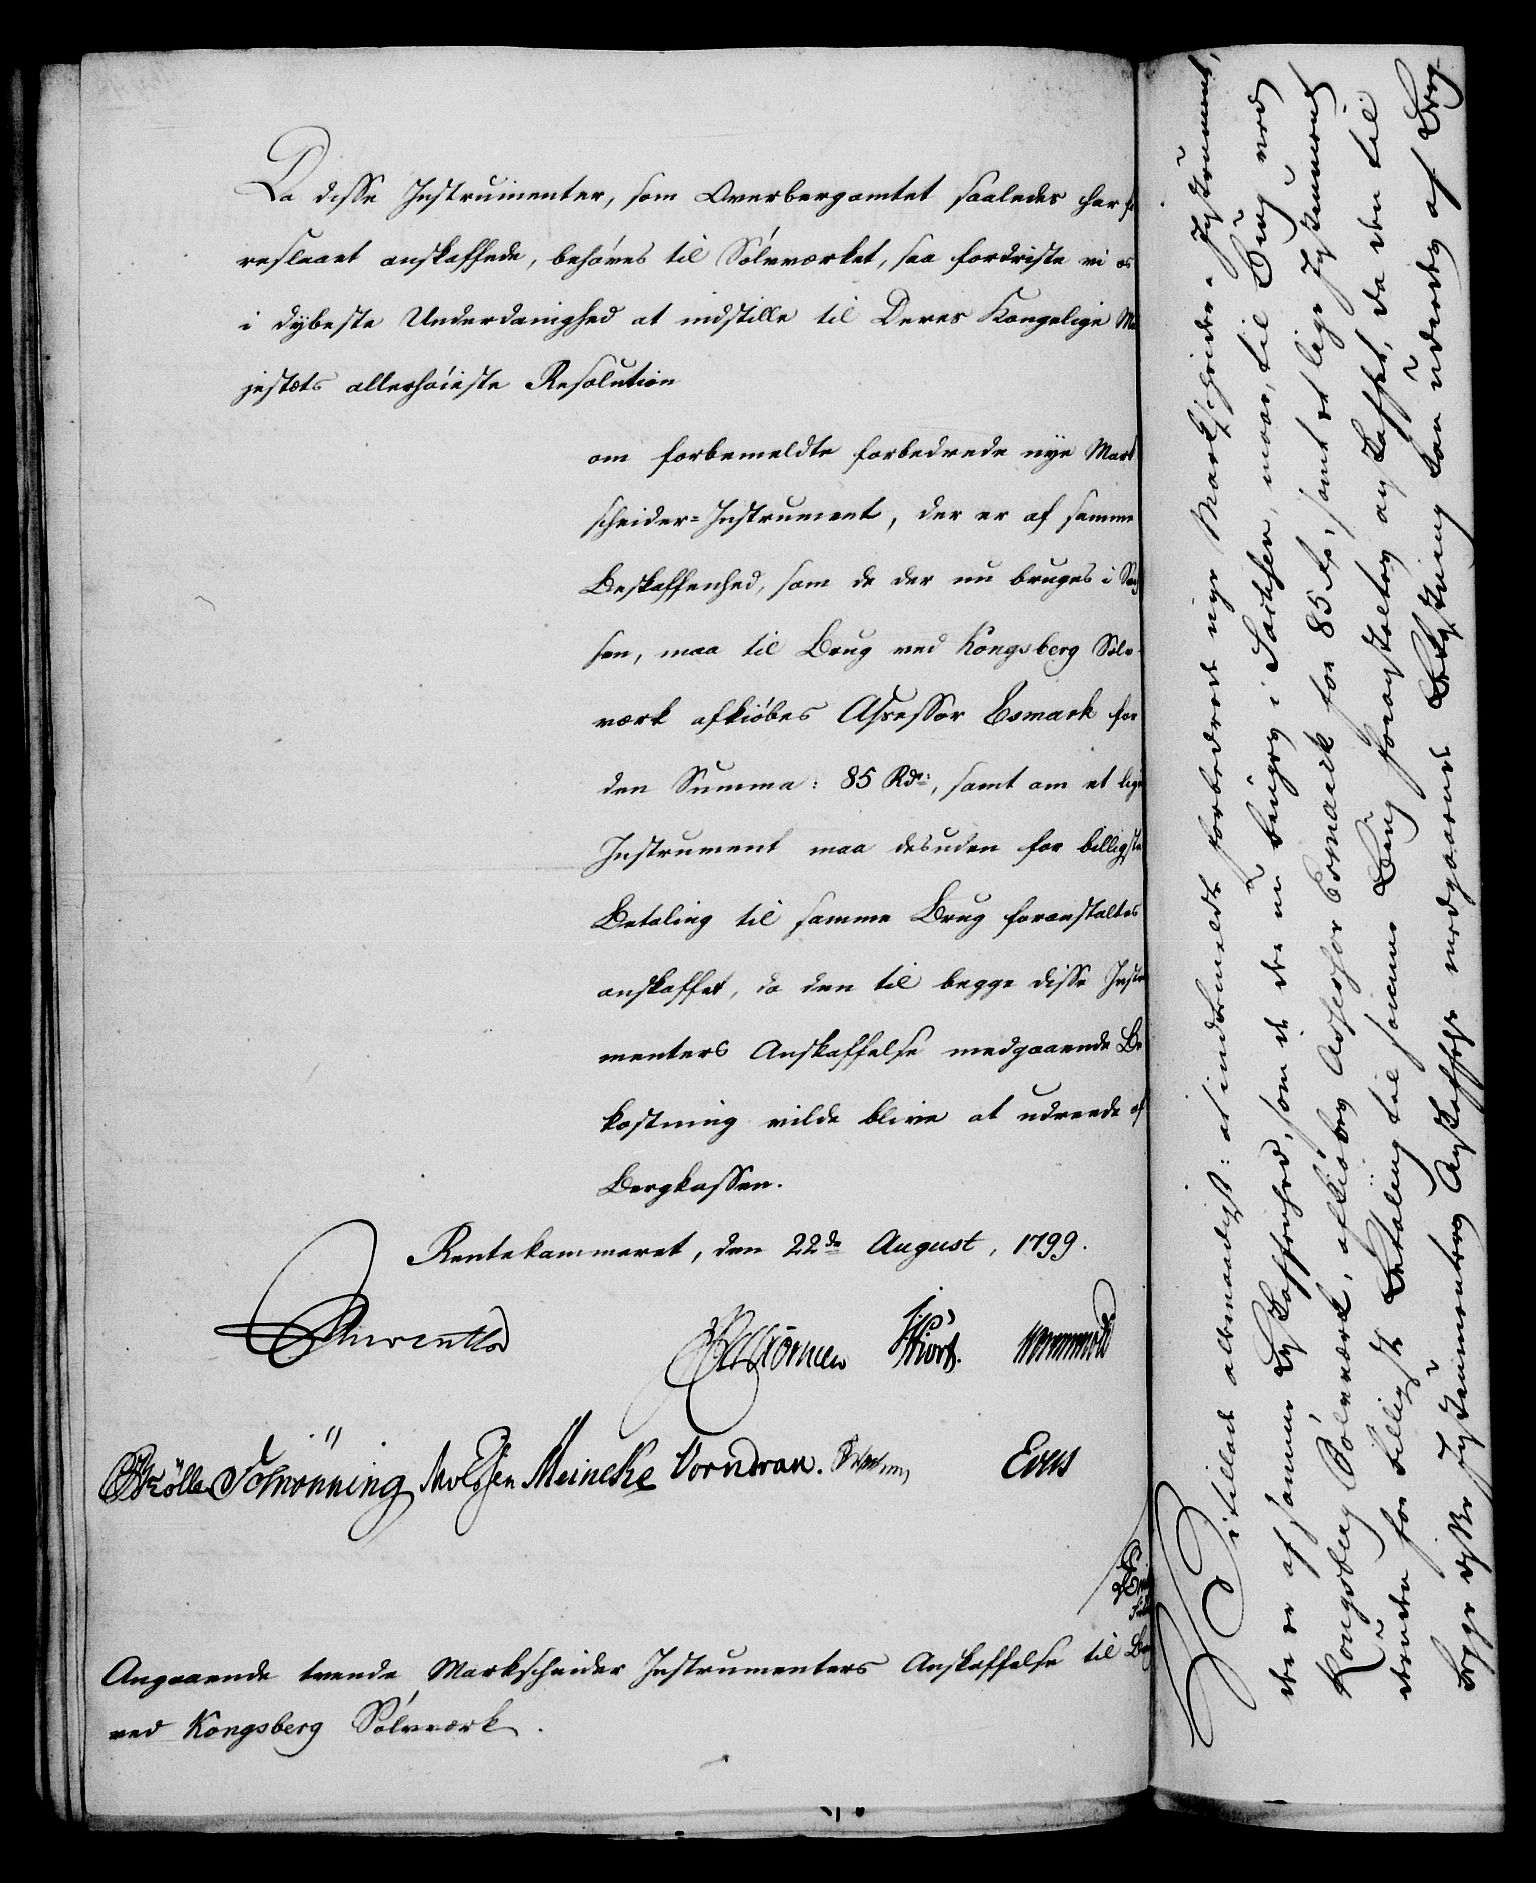 Da disse Instrumenter, som Overbergamtet saaledes har fo
reslaaet anskaffede, behøves til Sølvværket, saa fordriste vi os
i dybeste Underdanighed at indstille til Deres Kongelige Ma
jestæts allerhøieste Resolution
om forbemeldte forbedrede nye Mark
scheider-Instrument, der er af samme
Beskaffenhed, som de der nu bruges i Sax
sen, maa til Brug ved Kongsberg Sølv
værk afkiøbes Assessor Esmark for
den Summa: 85 Rdr:, samt om et lige
Instrument maa desuden for billigste
Betaling til samme Brug foranstaltes
anskaffet, da den til begge disse Instru
menters Anskaffelse medgaaende Be
kostning vilde blive at udreede af
Bergkassen.
Rentekammeret, den 22de August, 1799.
Reventlow
Schønning Meincke Vorndran. Evers
Angaaende tvende Markscheider Instrumenters Anskaffelse til Brug
ved Kongsberg Sølvværk.
Vi tillade allernaadigst: at indbemeldte forbedrede nye Markscheider-Instrument,
der er af samme Beskaffenhed, som de der nu bruges i Sachsen, maae, til Brug ved
Kongsberg Sølvværk, afkiøbes Assessor Esmark for 85 Rdr, samt et lige Instrument
desuden for billigste Betaling til samme Brug foranstaltes anskaffet, da den til
begge disse Instrumenters Anskaffelse medgaaende Bekostning kan udredes af Berg